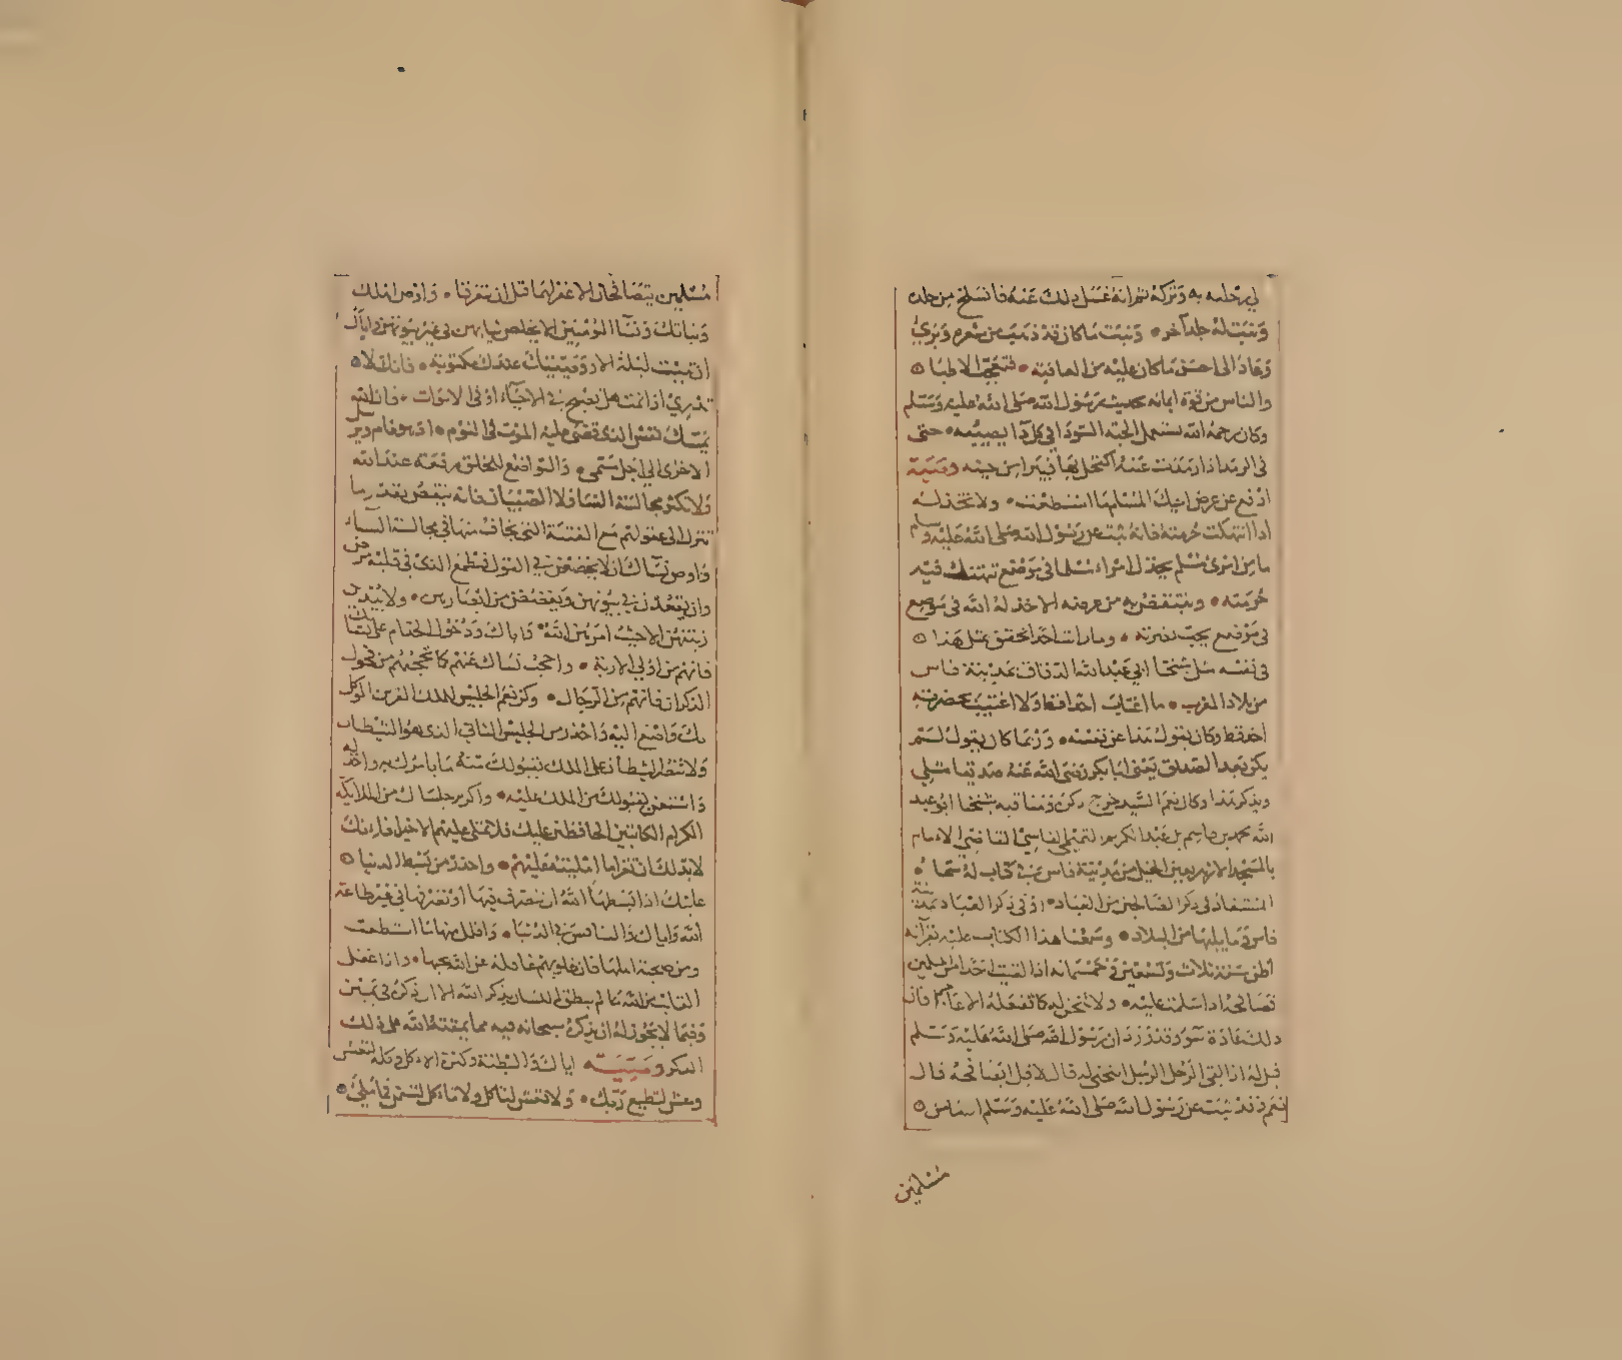 في رجليه به وتركه ثم انه غسل ذلك عنه فانسلخ من جلده
ونبت له جلد آخر • ونبت ما كان قد ذهب من شعره وبرئ
وعاد الى احسن ما كان عليه من العافية • فتعجب الاطبا
والناس من قوة ايمانه بحديث رسول الله صلى الله عليه وسلم
وكان رحمه الله يستعمل الحبة السودا في كل دا يصيبه • حتى
في الرمد اذا رمدت عينه اكتحل بها فيبرا من حينه وصية
ادفع عن عرض اخيك المسلم ما استطعت • ولا تخذله
اذا انتهكت حرمته فانه ثبت عن رسول الله صلى الله عليه وسلم
ما من امرئ مسلم يخذل امراء مسلما في موضع تنتهك فيه
حرمته • وينتقص به من عرضه الا خذله الله في موضع
في موضع يحب نصرته • وما رايت احدا تحقق بمثل هذا
في نفسه مثل شيخنا ابي عبد الله الدقاق بمدينة فاس
من بلاد المغرب • ما اغتاب احدا قط ولا اغتيب بحضرته
احد قط وكان يقول هذا عن نفسه • وربما كان يقول لم
يكن بعد ابا الصديق يعنى ابا بكر رضي الله عنه صديق مثلي
ويذكر هذا وكان نعم السيد خرج ذكره ومناقبه شيخنا ابو عبد
الله محمد بن قاسم بن عبد الكريم التميمي الفاسي الامام
بالمسجد الازهر بعين الخيل من مدينة فاس في كتاب له سماه
المستفاد في ذكر الصالحين من العباد • في ذكر العباد بمدينة
فاس وما يليها من البلاد • وسمعنا هذا الكتاب عليه بقرآته
اظن سنة ثلاث وتسعين وخمسمائه اذا لقيت احدا من المسلمين
فصافحه اذا سلمت عليه • ولا تنحن له كما تفعله الاعاجم فان
ذلك عادة سوء وقد ورد ان رسول الله صلى الله عليه وسلم
قيل له اذا لقي الرجل الرجل اينحني له قال لا قيل ايصافحه قال
نعم وقد ثبت عن رسول الله صلى الله عليه وسلم ما من
مسلمين
مسلمين يتصافحان الا غفر لهما قبل ان يتفرقا • واوص اهلك
وبناتك ونسا المؤمنين لا يخلعن ثيابهن في غير بيوتهن واياك
ان تبيت ليلة الا ووصيتك عندك مكتوبة • فانك لا
تدري اذا نمت هل تصبح في الاحياء او في الاموات • فان الله
يمسك نفس الذي قضى عليه الموت في النوم • ويرسل
الاخرى الى اجل مسمى • والتواضع للخلق رفعة عند الله
ولا تكثر مجالسة النسا ولا الصبيان فانه ينقص بقدر ما
تنزل الى عقولهم مع الفتنة التي تخاف منها في مجالسة النساء
واوص نساك ان لا يخضعن في القول فيطمع الذي في قلبه مرض
وان يقعدن في بيوتهن ويغضضن من ابصارهن • ولا يبدين
زينتهن الا حيث امرهن الله • واياك ودخول الخدام على نسائك
فانهم من اولي الاربة • واحجب نساك عنهم كما تحجبهم من فحول
الذكران فانهم من الرجال • وكن نعم الجليس للملك القرين الموكل
بك واصغ اليه واحذر من الجليس الثاني الذي هو الشيطان
ولا تنصر الشيطان على الملك بقبولك منه ما يامرك به واخذله
واستعن بقبولك من الملك عليه • واكرم جلساك من الملائكة
الكرام الكاتبين الحافظين عليك فلا تملي عليهم الا خيرا فانك
لا بد لك ان تقرا ما امليته عليهم • واحذر من بسط الدنيا
عليك اذا بسطها الله ان تتصرف فيها او تنفقها في غير طاعة
الله واياك والتنافس في الدنيا • واقلل منها ما استطعت
ومن صحبة اهلها فان قلوبهم غافلة عن الله بحبها • واذا غفل
القلب عن الله عالم ينطق اللسان بذكر الله الا ان ذكره في يمين
وفيما لا يجوز له ان يذكره سبحانه فيه مما يمقته الله على ذلك
الذكر وصية اياك والبطنة وكثرة الاكل وكل لتعش
وعش لتطيع ربك • ولا تعش لتاكل ولا تاكل لتسمن